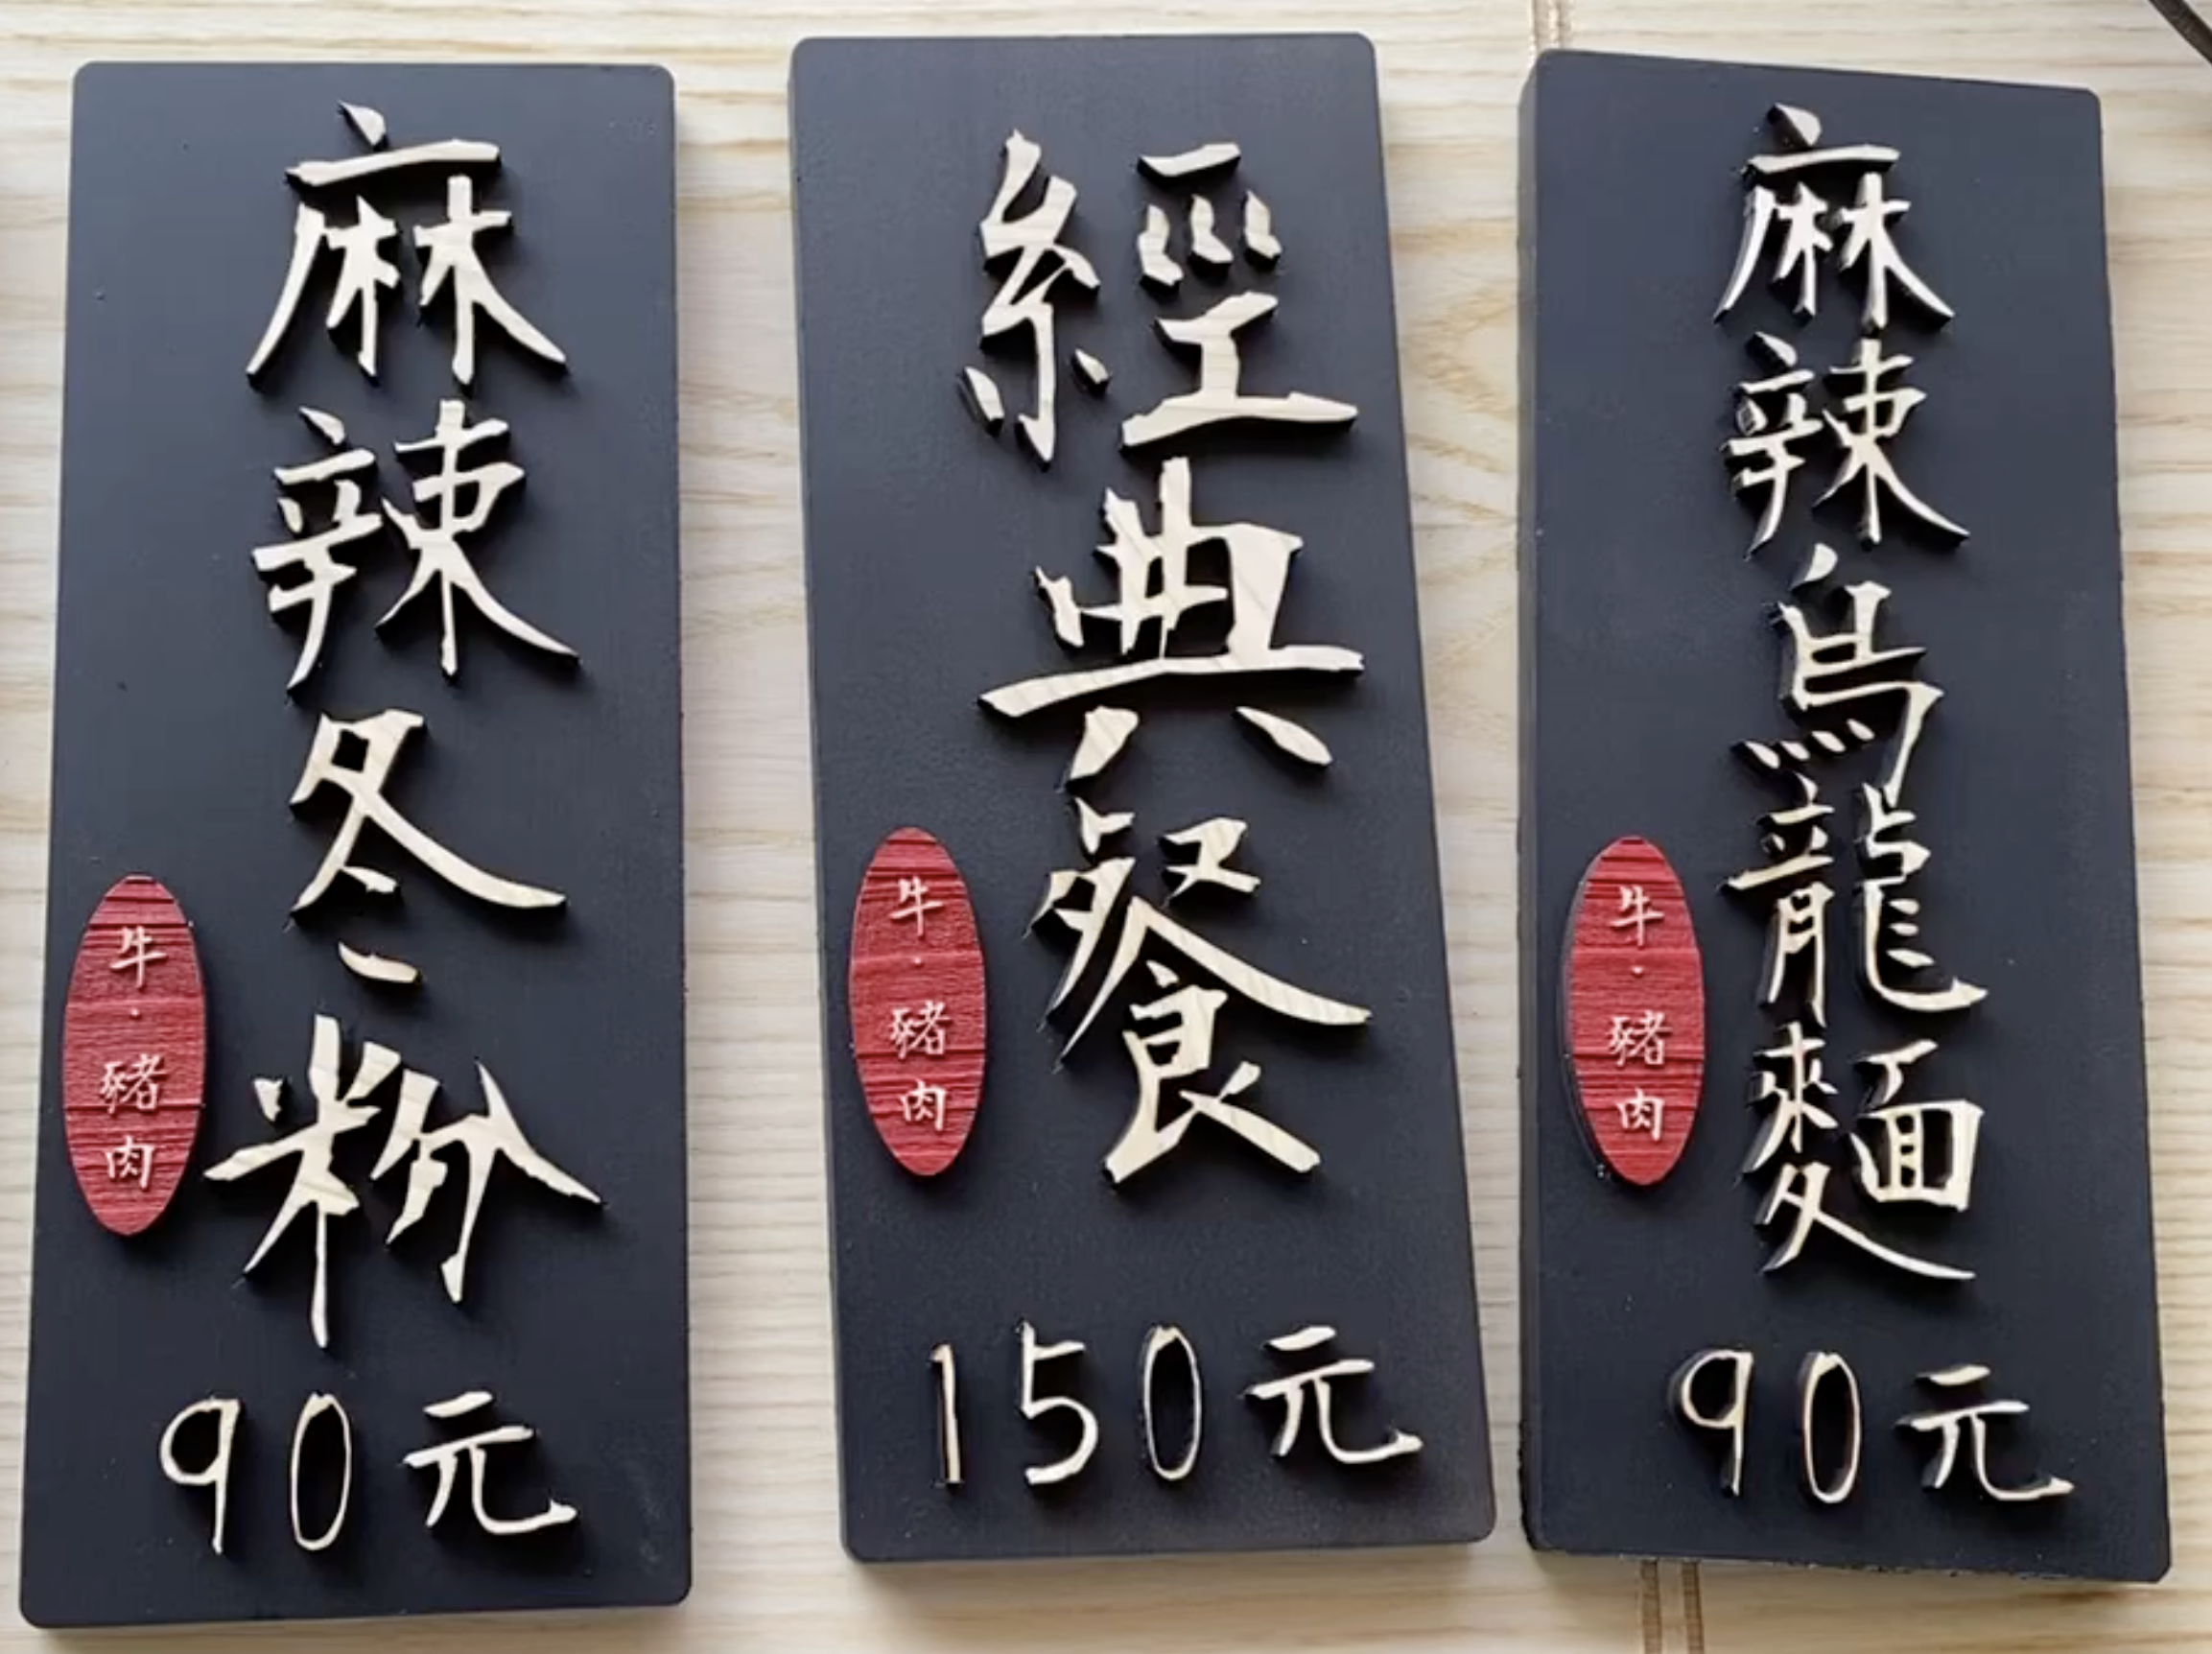 麻辣冬粉
牛·豬肉
90元
經典餐
牛·豬肉
150元
麻辣烏龍麵
牛·豬肉
90元